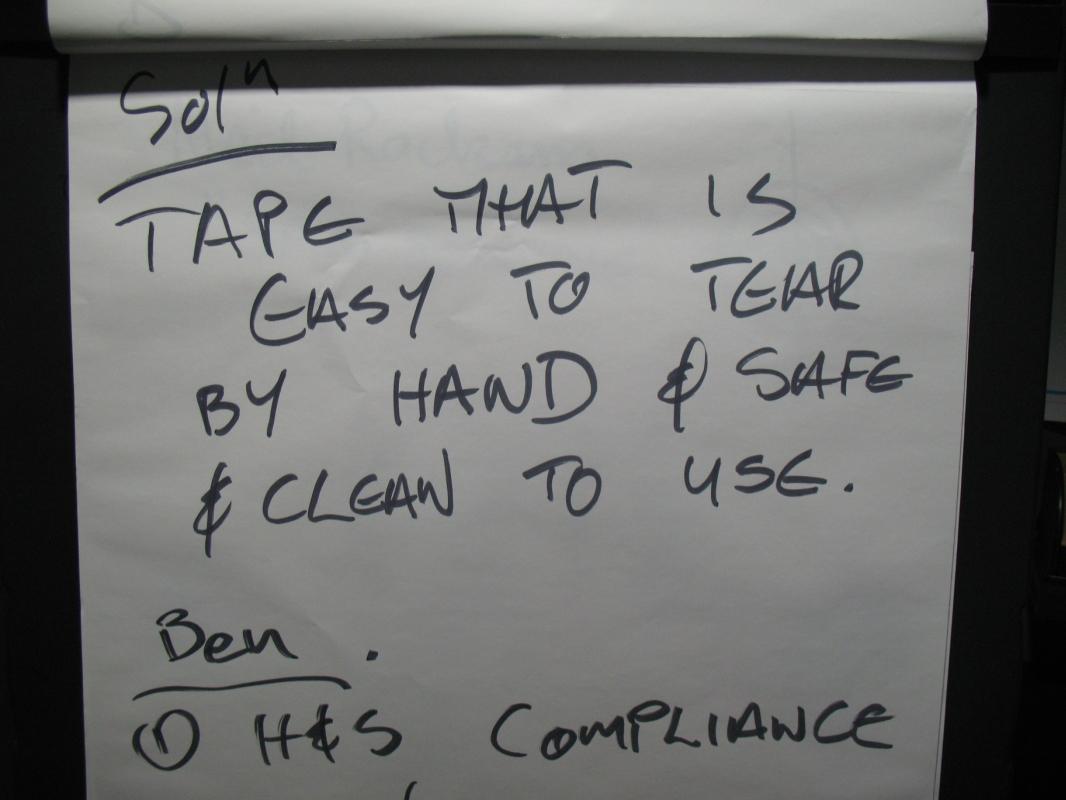 Solⁿ
TAPE THAT IS
EASY TO TEAR
BY HAND & SAFE
& CLEAN TO USE.
Ben.
① H&S COMPLIANCE